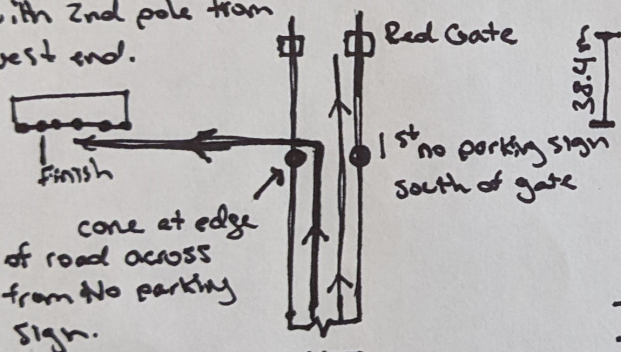 with 2nd pole from
west end.
Red Gate
Finish
1st no parking sign
south of gate
cone at edge
of road across
from No parking
sign.